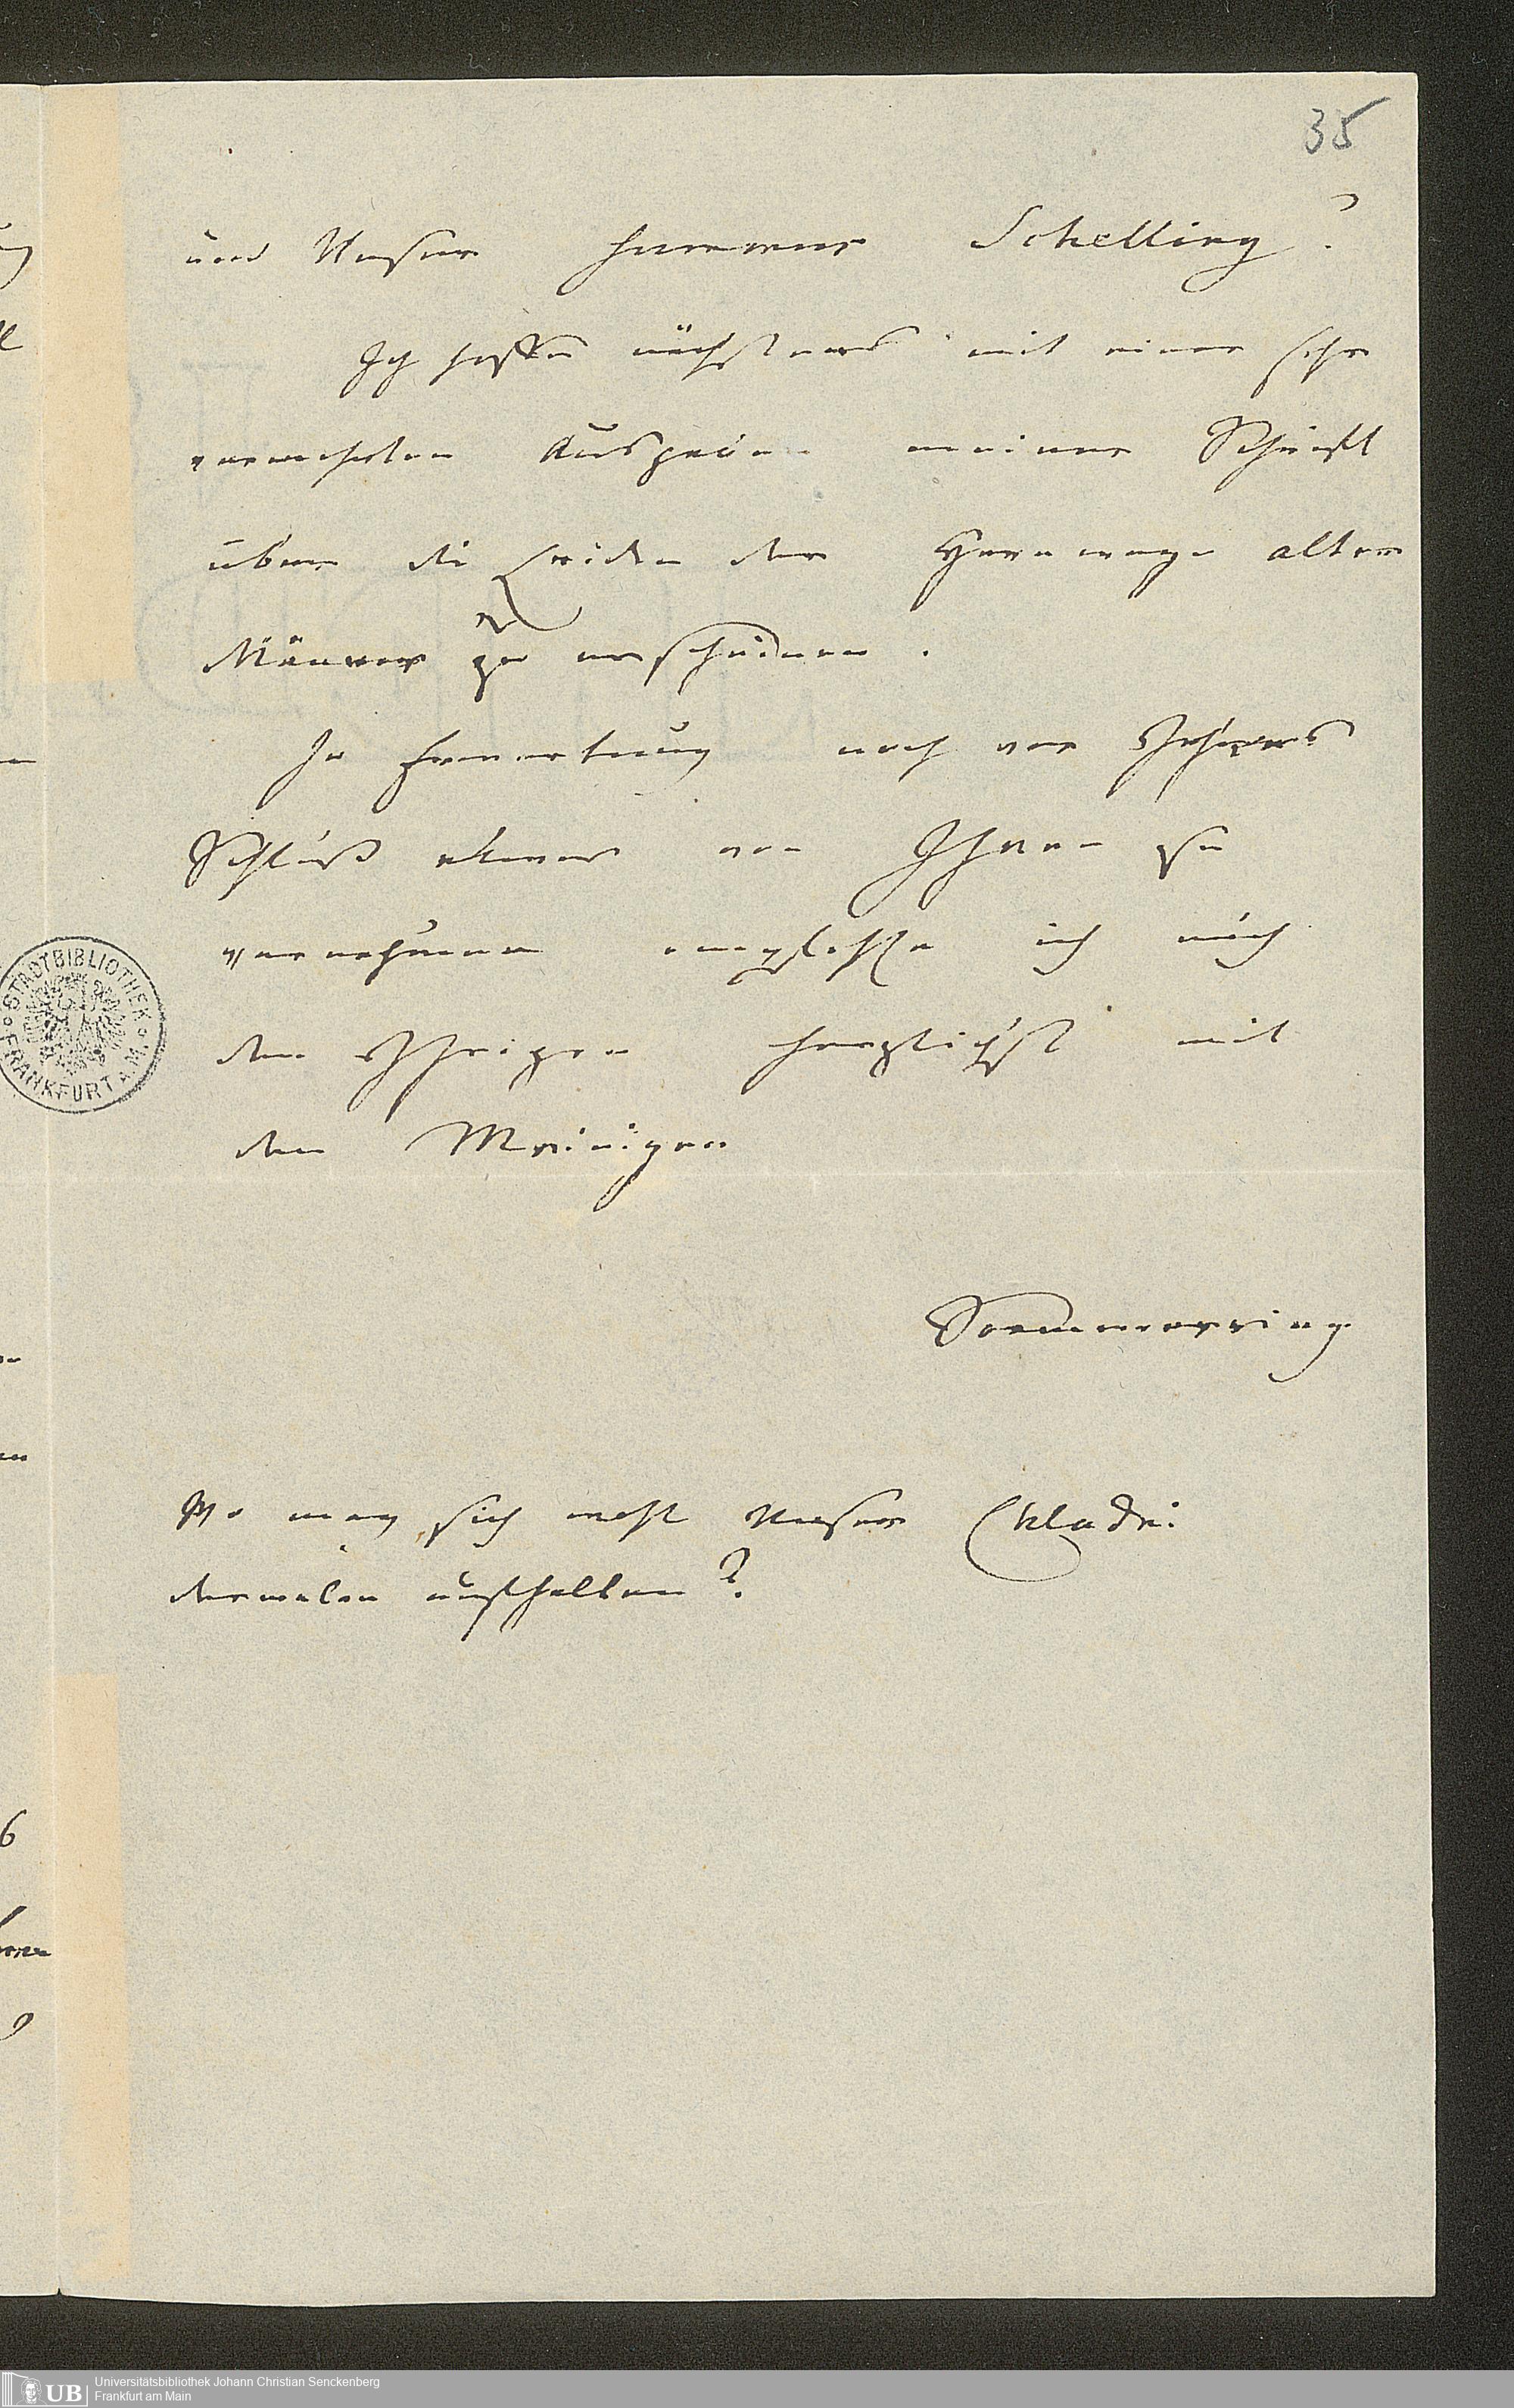 35
und Unser Schelling?
Ich hoffe nächstens mit einer sehr
vermehrten Ausgabe meiner Schrift
über die Leiden der Harnwege alter
Männer zu erscheinen.
In Erwartung noch vor Jahres
Schluß etwas von Ihnen zu
vernehmen empfehle ich mich
den Ihrigen herzlichst mit
den Meinigen
Soemmerring
Wo mag sich wohl unser Chladni
dermalen aufhalten?
STADTBIBLIOTHEK
FRANKFURT A. M.
UB Universitätsbibliothek Johann Christian Senckenberg
Frankfurt am Main